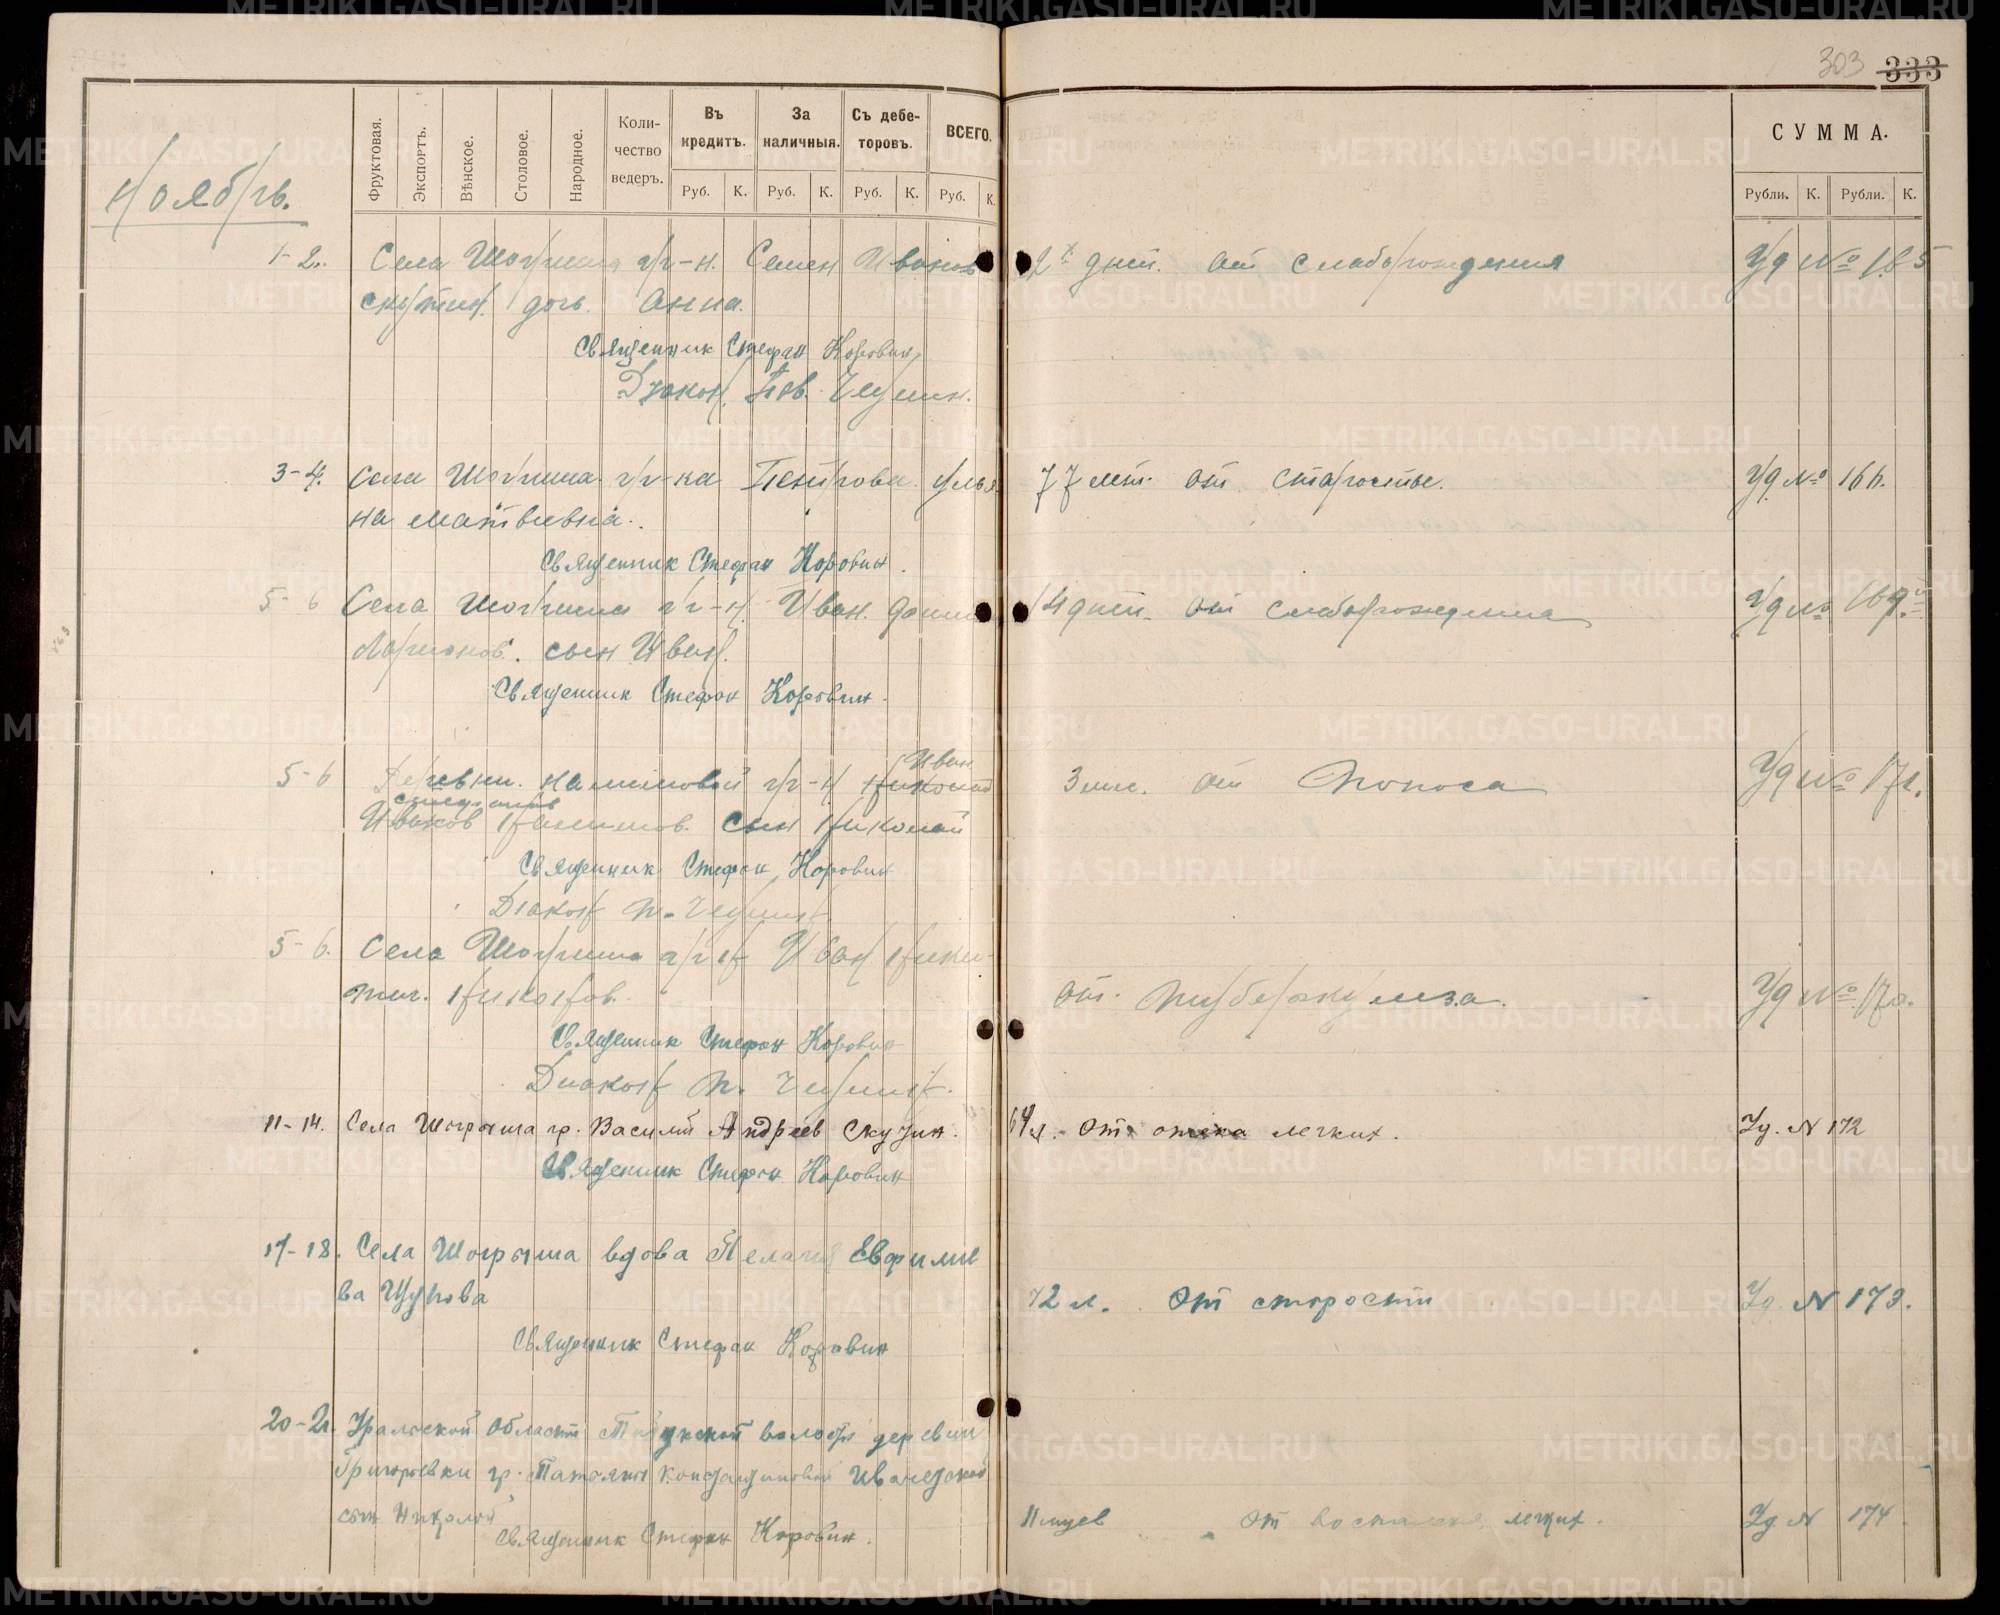 303 333
Фруктовая. Экспортъ. Вѣнское. Столовое. Народное. Коли-чество ведеръ. Въ кредитъ. За наличныя. Съ дебе-торовъ. ВСЕГО. СУММА.
Руб. К. Руб. К. Руб. К. Руб. К. Рубли. К. Рубли. К.
Ноябрь.
1-2. Села Шогрыша гр-н. Семен Иванов 2х дней. от слаборождения Уд № 165
дочь. Анна.
Священник Стефан Коровин
Диакон
3-4. Села Шогрыша гр-ка Петрова. Улья 77 лет. от старости. Уд № 166.
на Матвиевна.
Священник Стефан Коровин.
5-6 Села Шогрыша гр-н. Иван 14 дней. от слаборождения Уд №
Ларионов. сын Иван.
Священник Стефан Коровин.
Иван
5-6 Деревни. гр-н Николай 3 мес. от поноса Уд № 171.
Иванов сын Николай
Священник Стефан Коровин
Диакон П.
5-6. Села Шогрыша гр-н Иван Ники-
тич. Никонов. от. туберкулеза. Уд № 170.
Священник Стефан Коровин
Диакон П.
11-14. Села Шогрыша гр. Василий Андреев Скутин. 64 л. от отека легких. Уд. N 172
Священник Стефан Коровин
17-18. Села Шогрыша вдова Пелагия Евфимие
ва Щупова 72 л. от старости Уд. N 173.
Священник Стефан Коровин
20-21. Уральской области волости деревни
Григорьевки гр. Татьяны
сын Николай 11 месцев от воспаления легких. Уд. N 174
Священник Стефан Коровин.
METRIKI.GASO-URAL.RU